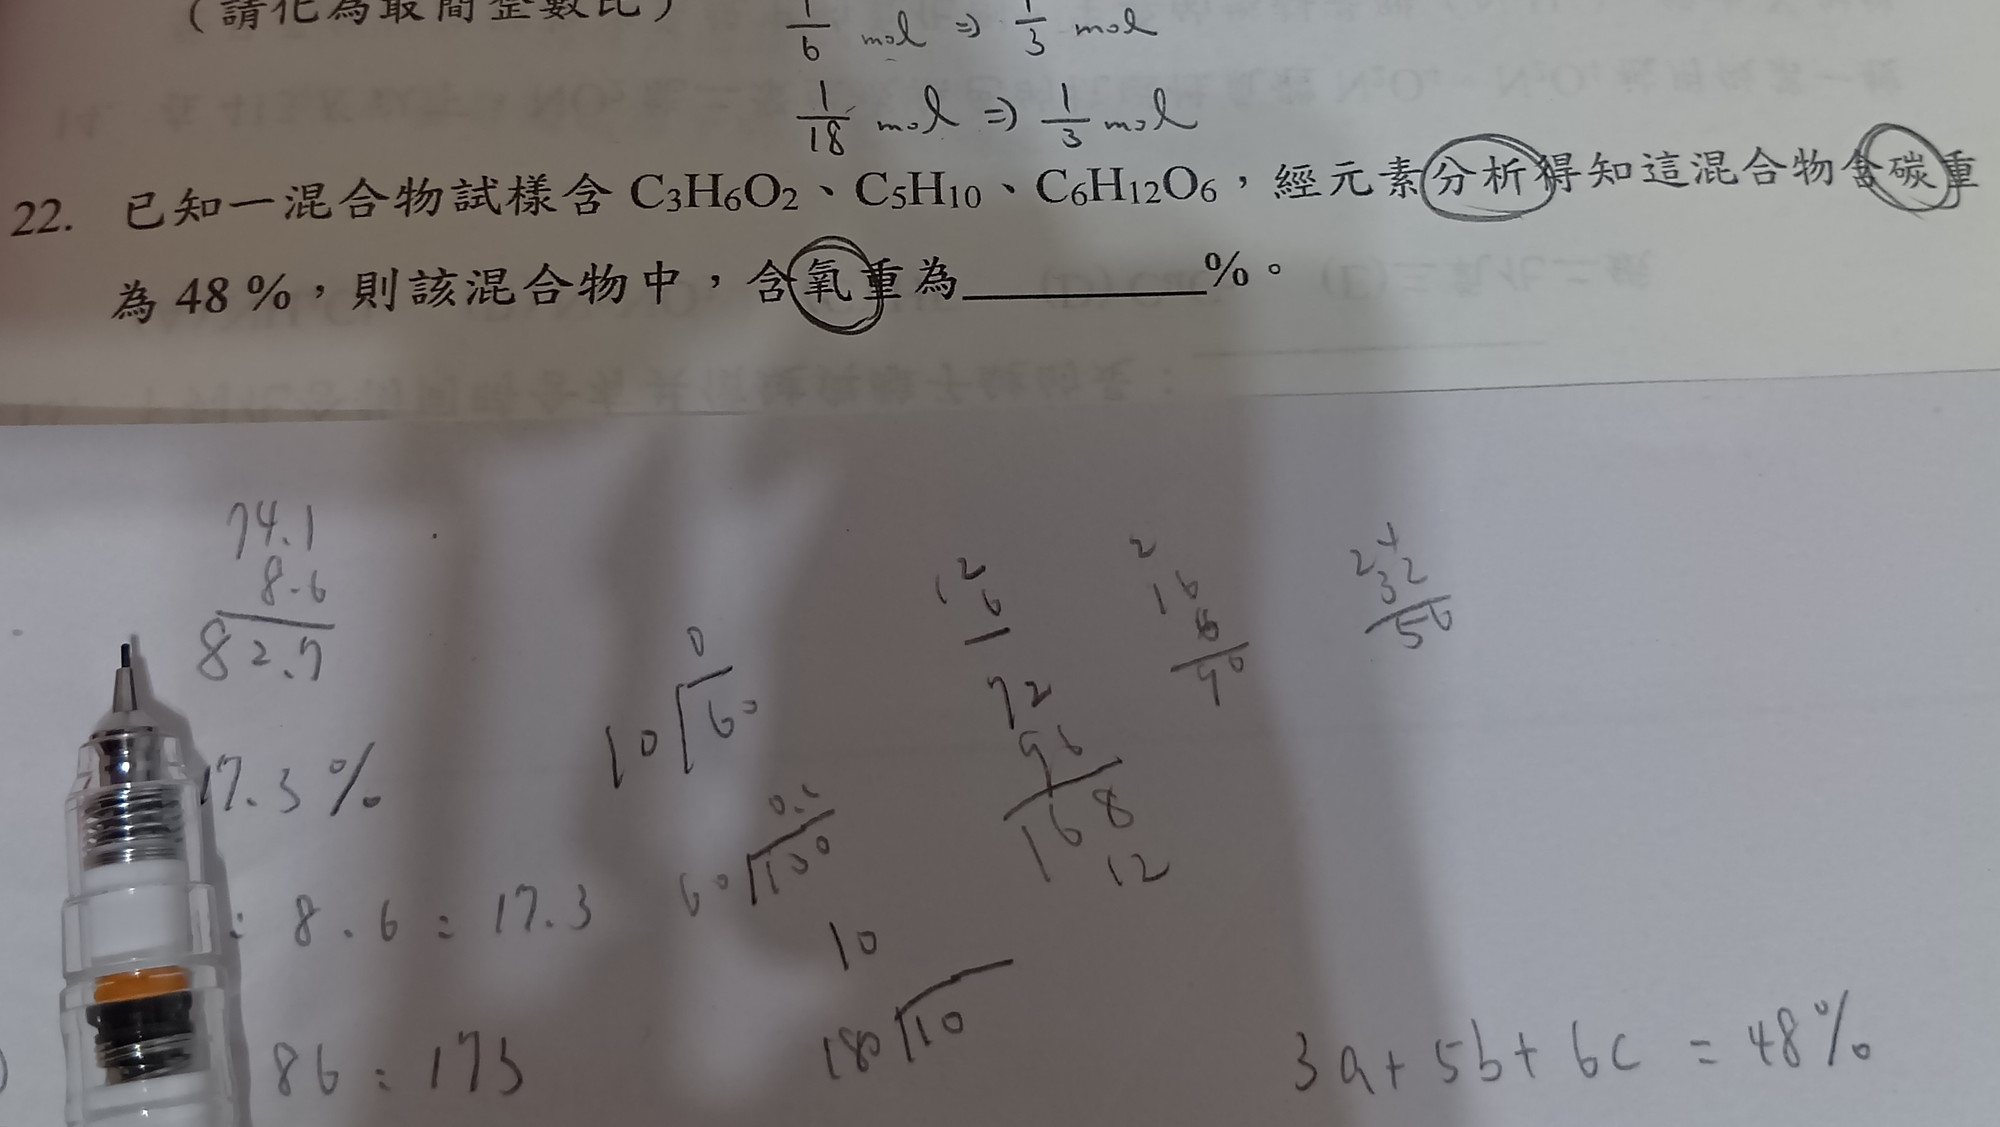 (請化為最簡整數比)
1/6 mol ⇒ 1/3 mol
1/18 mol ⇒ 1/3 mol
22. 已知一混合物試樣含 C3H6O2、C5H10、C6H12O6,經元素分析得知這混合物含碳重
為 48 %,則該混合物中,含氧重為________%。
74.1
8.6
82.7
17.3%
: 8.6 : 17.3
86 : 173
0
10 60
60 130
10
180 10
12
6
72
96
168
12
2
16
6
90
2
32
56
3a + 5b + 6c = 48%